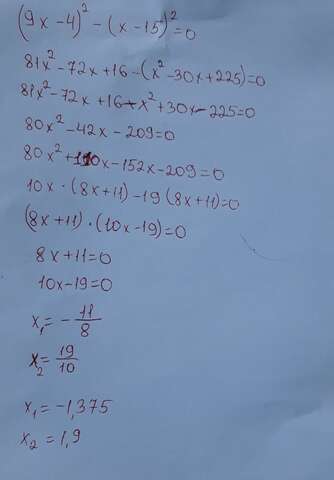 (9x-4)² - (x-15)² = 0
81x² - 72x + 16 - (x² - 30x + 225) = 0
81x² - 72x + 16 - x² + 30x - 225 = 0
80x² - 42x - 209 = 0
80x² + 110x - 152x - 209 = 0
10x · (8x + 11) - 19 (8x + 11) = 0
(8x + 11) · (10x - 19) = 0
8x + 11 = 0
10x - 19 = 0
x₁ = - 11/8
x₂ = 19/10
x₁ = -1,375
x₂ = 1,9